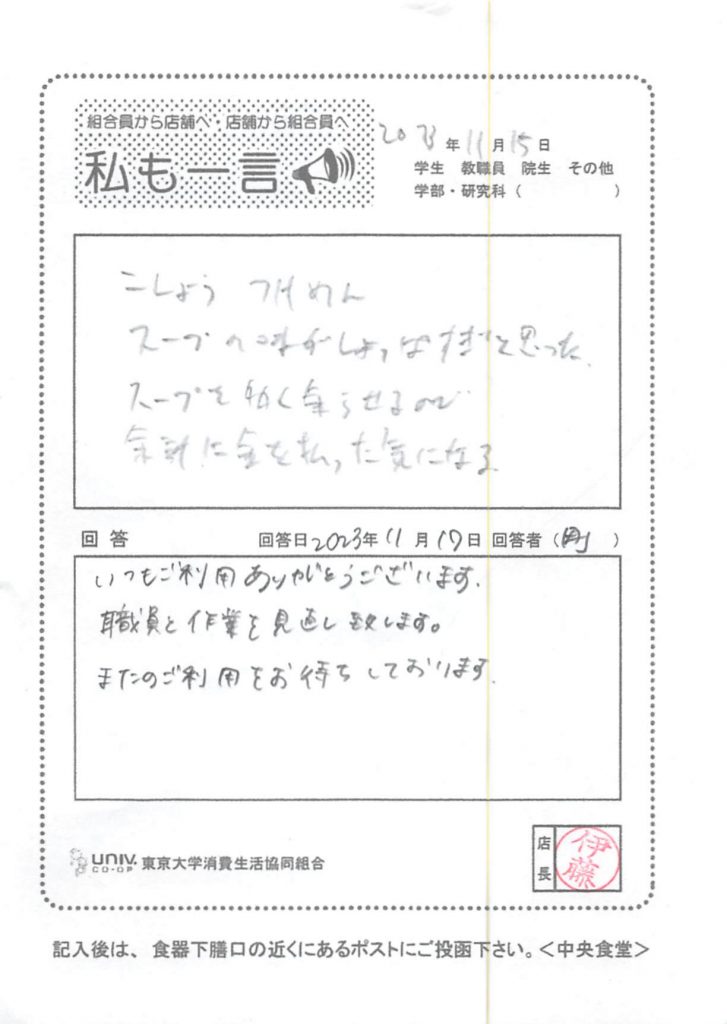 組合員から店舗へ・店舗から組合員へ
私も一言
2023年11月15日
学生 教職員 院生 その他
学部・研究科( )
こしょう つけめん
スープの味がしょっぱすぎと思った。
スープを 多く余らせるので
余計に金を払った気になる
回答 回答日2023年11月17日 回答者( )
いつもご利用ありがとうございます。
職員と作業を見直し致します。
またのご利用をお待ちしております。
UNIV. CO-OP 東京大学消費生活協同組合
店長 伊藤
記入後は、食器下膳口の近くにあるポストにご投函下さい。<中央食堂>